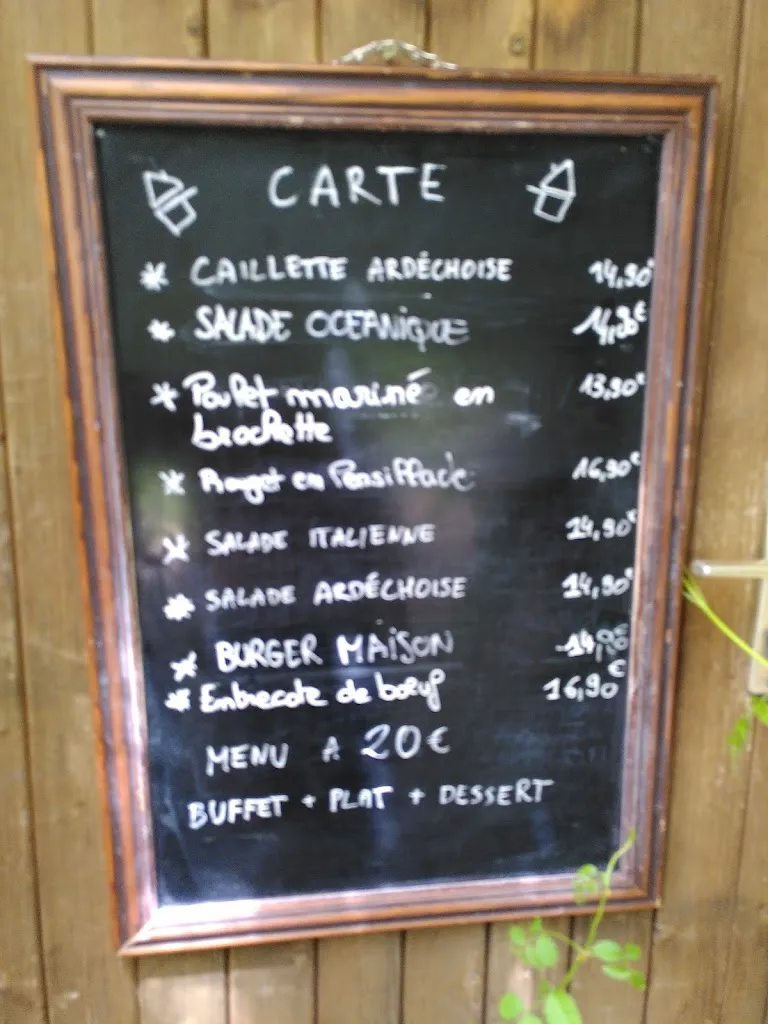 CARTE
* CAILLETTE ARDÉCHOISE 14,90€
* SALADE OCEANIQUE 14,90€
* Poulet mariné en 13,90€
brochette
* Rouget en Persillade 16,90€
* SALADE ITALIENNE 14,90€
* SALADE ARDÉCHOISE 14,90€
* BURGER MAISON 14,90€
* Entrecote de bœuf 16,90€
MENU A 20€
BUFFET + PLAT + DESSERT